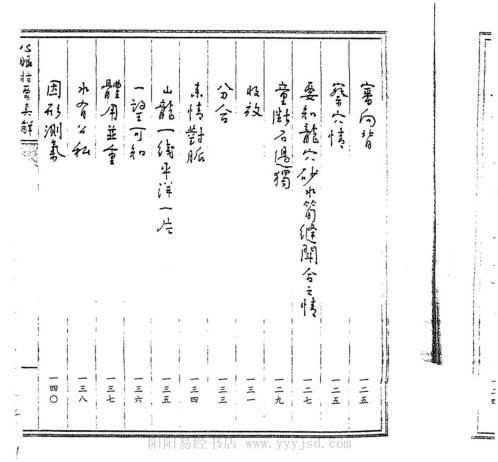 審向背 一二五
察穴情 一二五
要知龍穴砂水筋縫開合之情 一二七
一二九
收放 一三一
分合 一三三
一三四
山龍一线平洋一片 一三五
一望可知 一三六
體用並重 一三七
水有公私 一三八
因形測氣 一四〇
陽陽易经书店 www.yyyjsd.com